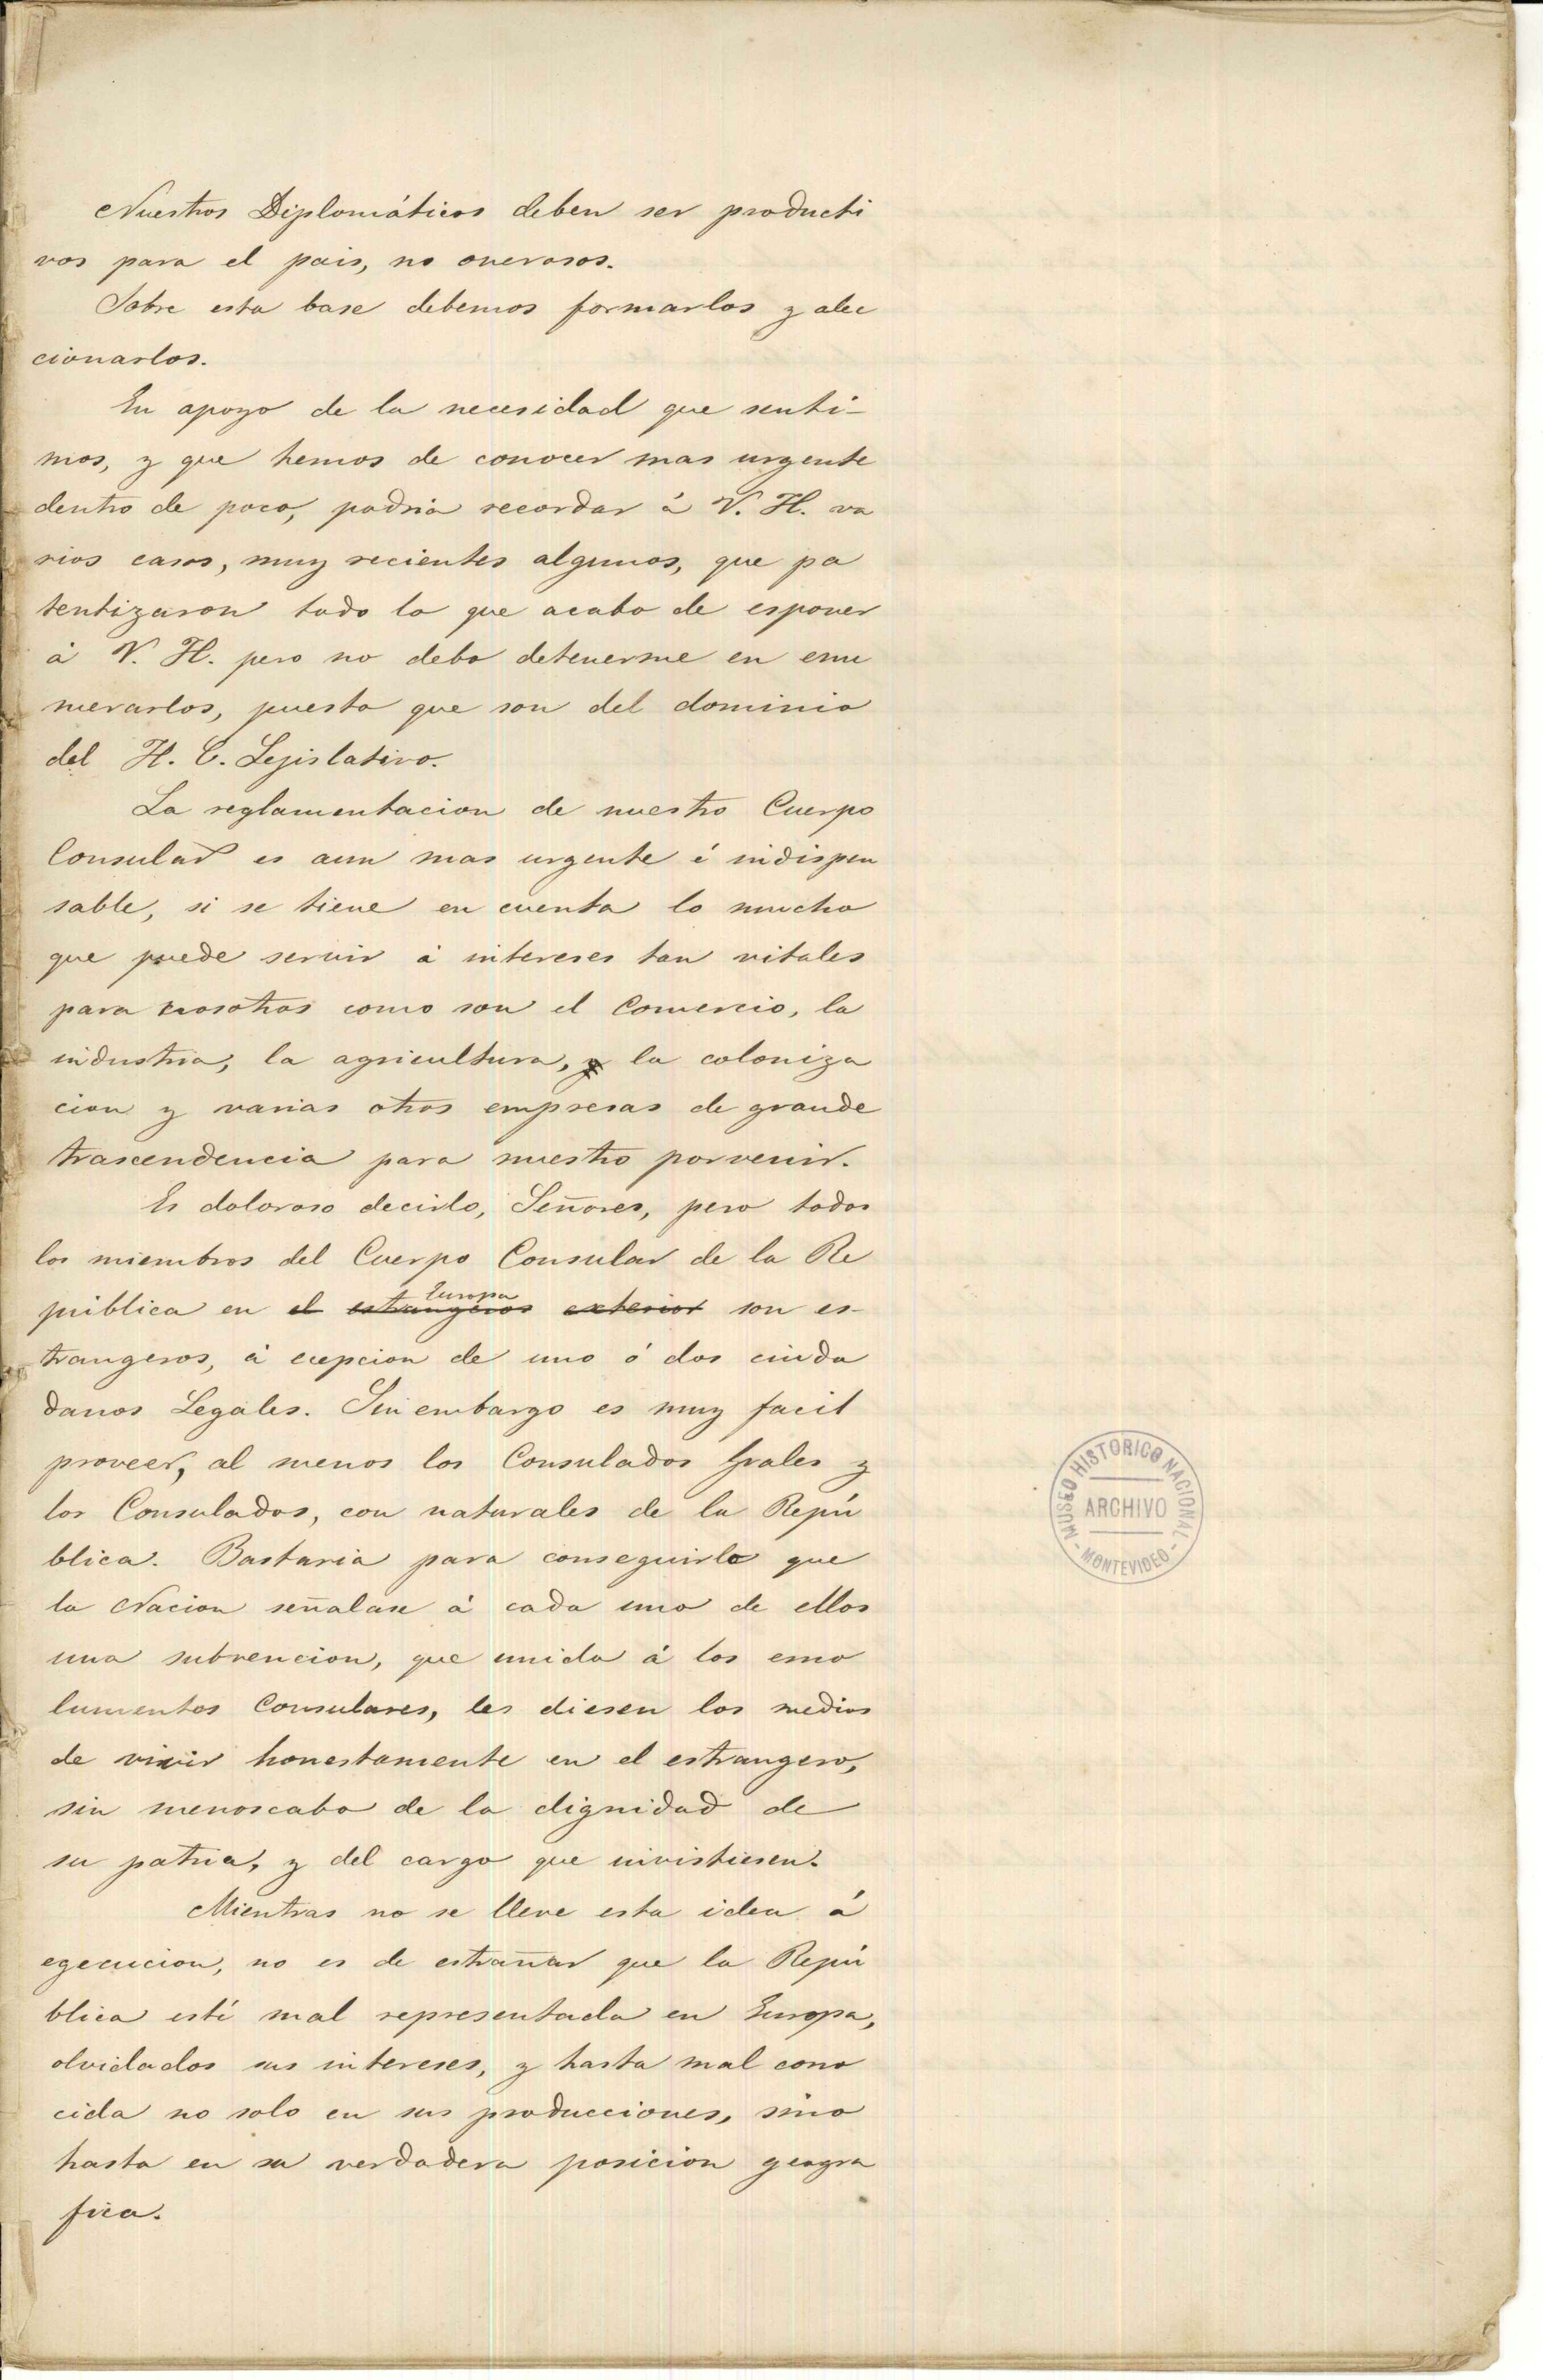 Nuestros Diplomáticos deben ser producti
vos para el pais, no onerosos.
Sobre esta base debemos formarlos y alec
cionarlos.
En apoyo de la necesidad que senti-
mos, y que hemos de conocer mas urgente
dentro de poco, podria recordar á V. H. va
rios casos, muy recientes algunos, que pa
tentizaron todo lo que acabo de esponer
á V. H. pero no debo detenerme en enu
merarlos, puesto que son del dominio
del H. C. Lejislativo.
La reglamentacion de nuestro Cuerpo
Consular es aun mas urgente é indispen
sable, si se tiene en cuenta lo mucho
que puede servir á intereses tan vitales
para nosotros como son el Comercio, la
industria, la agricultura, y la coloniza
cion y varias otras empresas de grande
trascendencia para nuestro porvenir.
Es doloroso decirlo, Señores, pero todos
los miembros del Cuerpo Consular de la Re
pública en el estrangeros exterior Europa son es-
trangeros, á ecepcion de uno ó dos ciuda
danos Legales. Sin embargo es muy facil
proveer, al menos los Consulados Grales y
los Consulados, con naturales de la Repú
blica. Bastaria para conseguirlo que
la Nacion señalase á cada uno de ellos
una subvencion, que unida á los emo
lumentos Consulares, les diesen los medios
de vivir honestamente en el estrangero,
sin menoscabo de la dignidad de
su patria, y del cargo que invistiesen.
Mientras no se lleve esta idea á
egecucion, no es de estrañar que la Repú
blica esté mal representada en Europa,
olvidados sus intereses, y hasta mal cono
cida no solo en sus producciones, sino
hasta en su verdadera posicion geogra
fica.
MUSEO HISTORICO NACIONAL
ARCHIVO
- MONTEVIDEO -